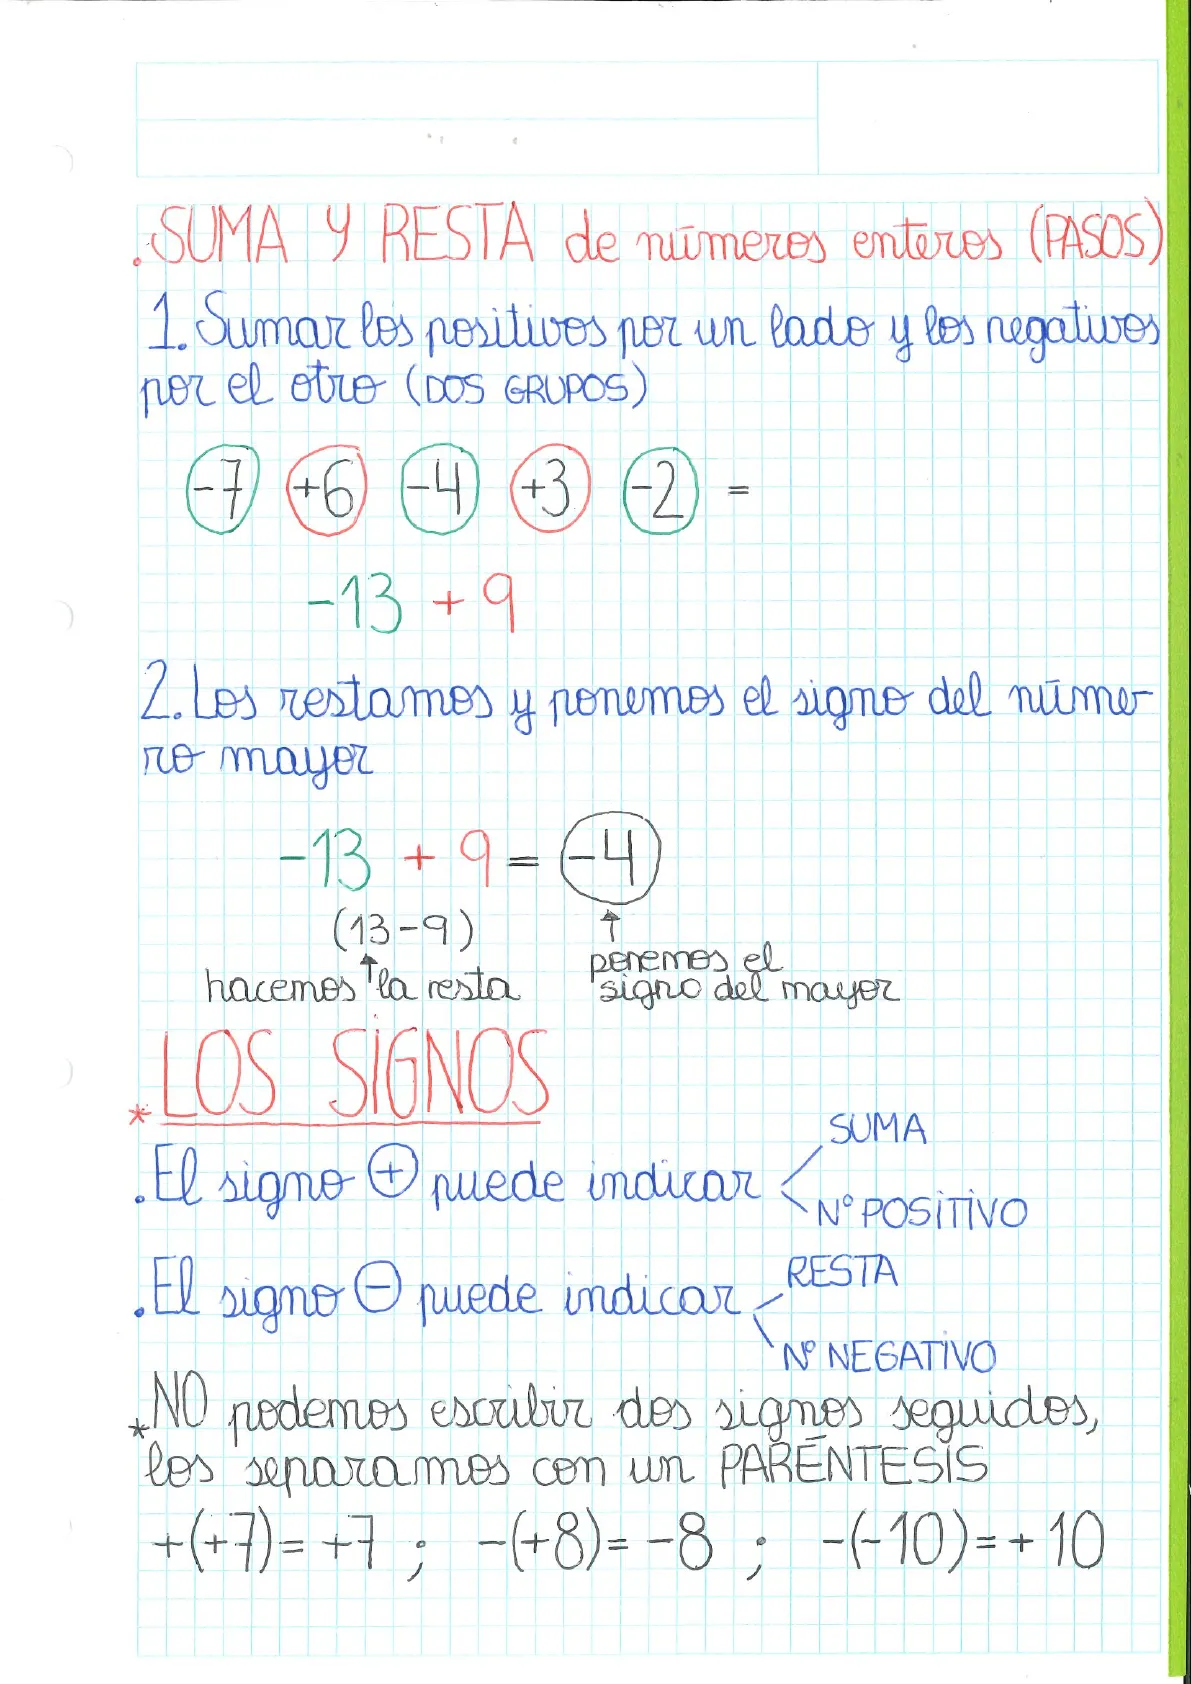 . SUMA Y RESTA de números enteros (PASOS)
1. Sumar los positivos por un lado y los negativos
por el otro (DOS GRUPOS)
-7 +6 -4 +3 -2 =
-13 + 9
2. Los restamos y ponemos el signo del núme-
ro mayor
-13 + 9 = -4
(13-9)
hacemos la resta
ponemos el
signo del mayor
* LOS SIGNOS
. El signo + puede indicar
SUMA
Nº POSITIVO
. El signo - puede indicar
RESTA
Nº NEGATIVO
* NO podemos escribir dos signos seguidos,
los separamos con un PARÉNTESIS
+(+7)= +7 ; -(+8)= -8 ; -(-10)= + 10